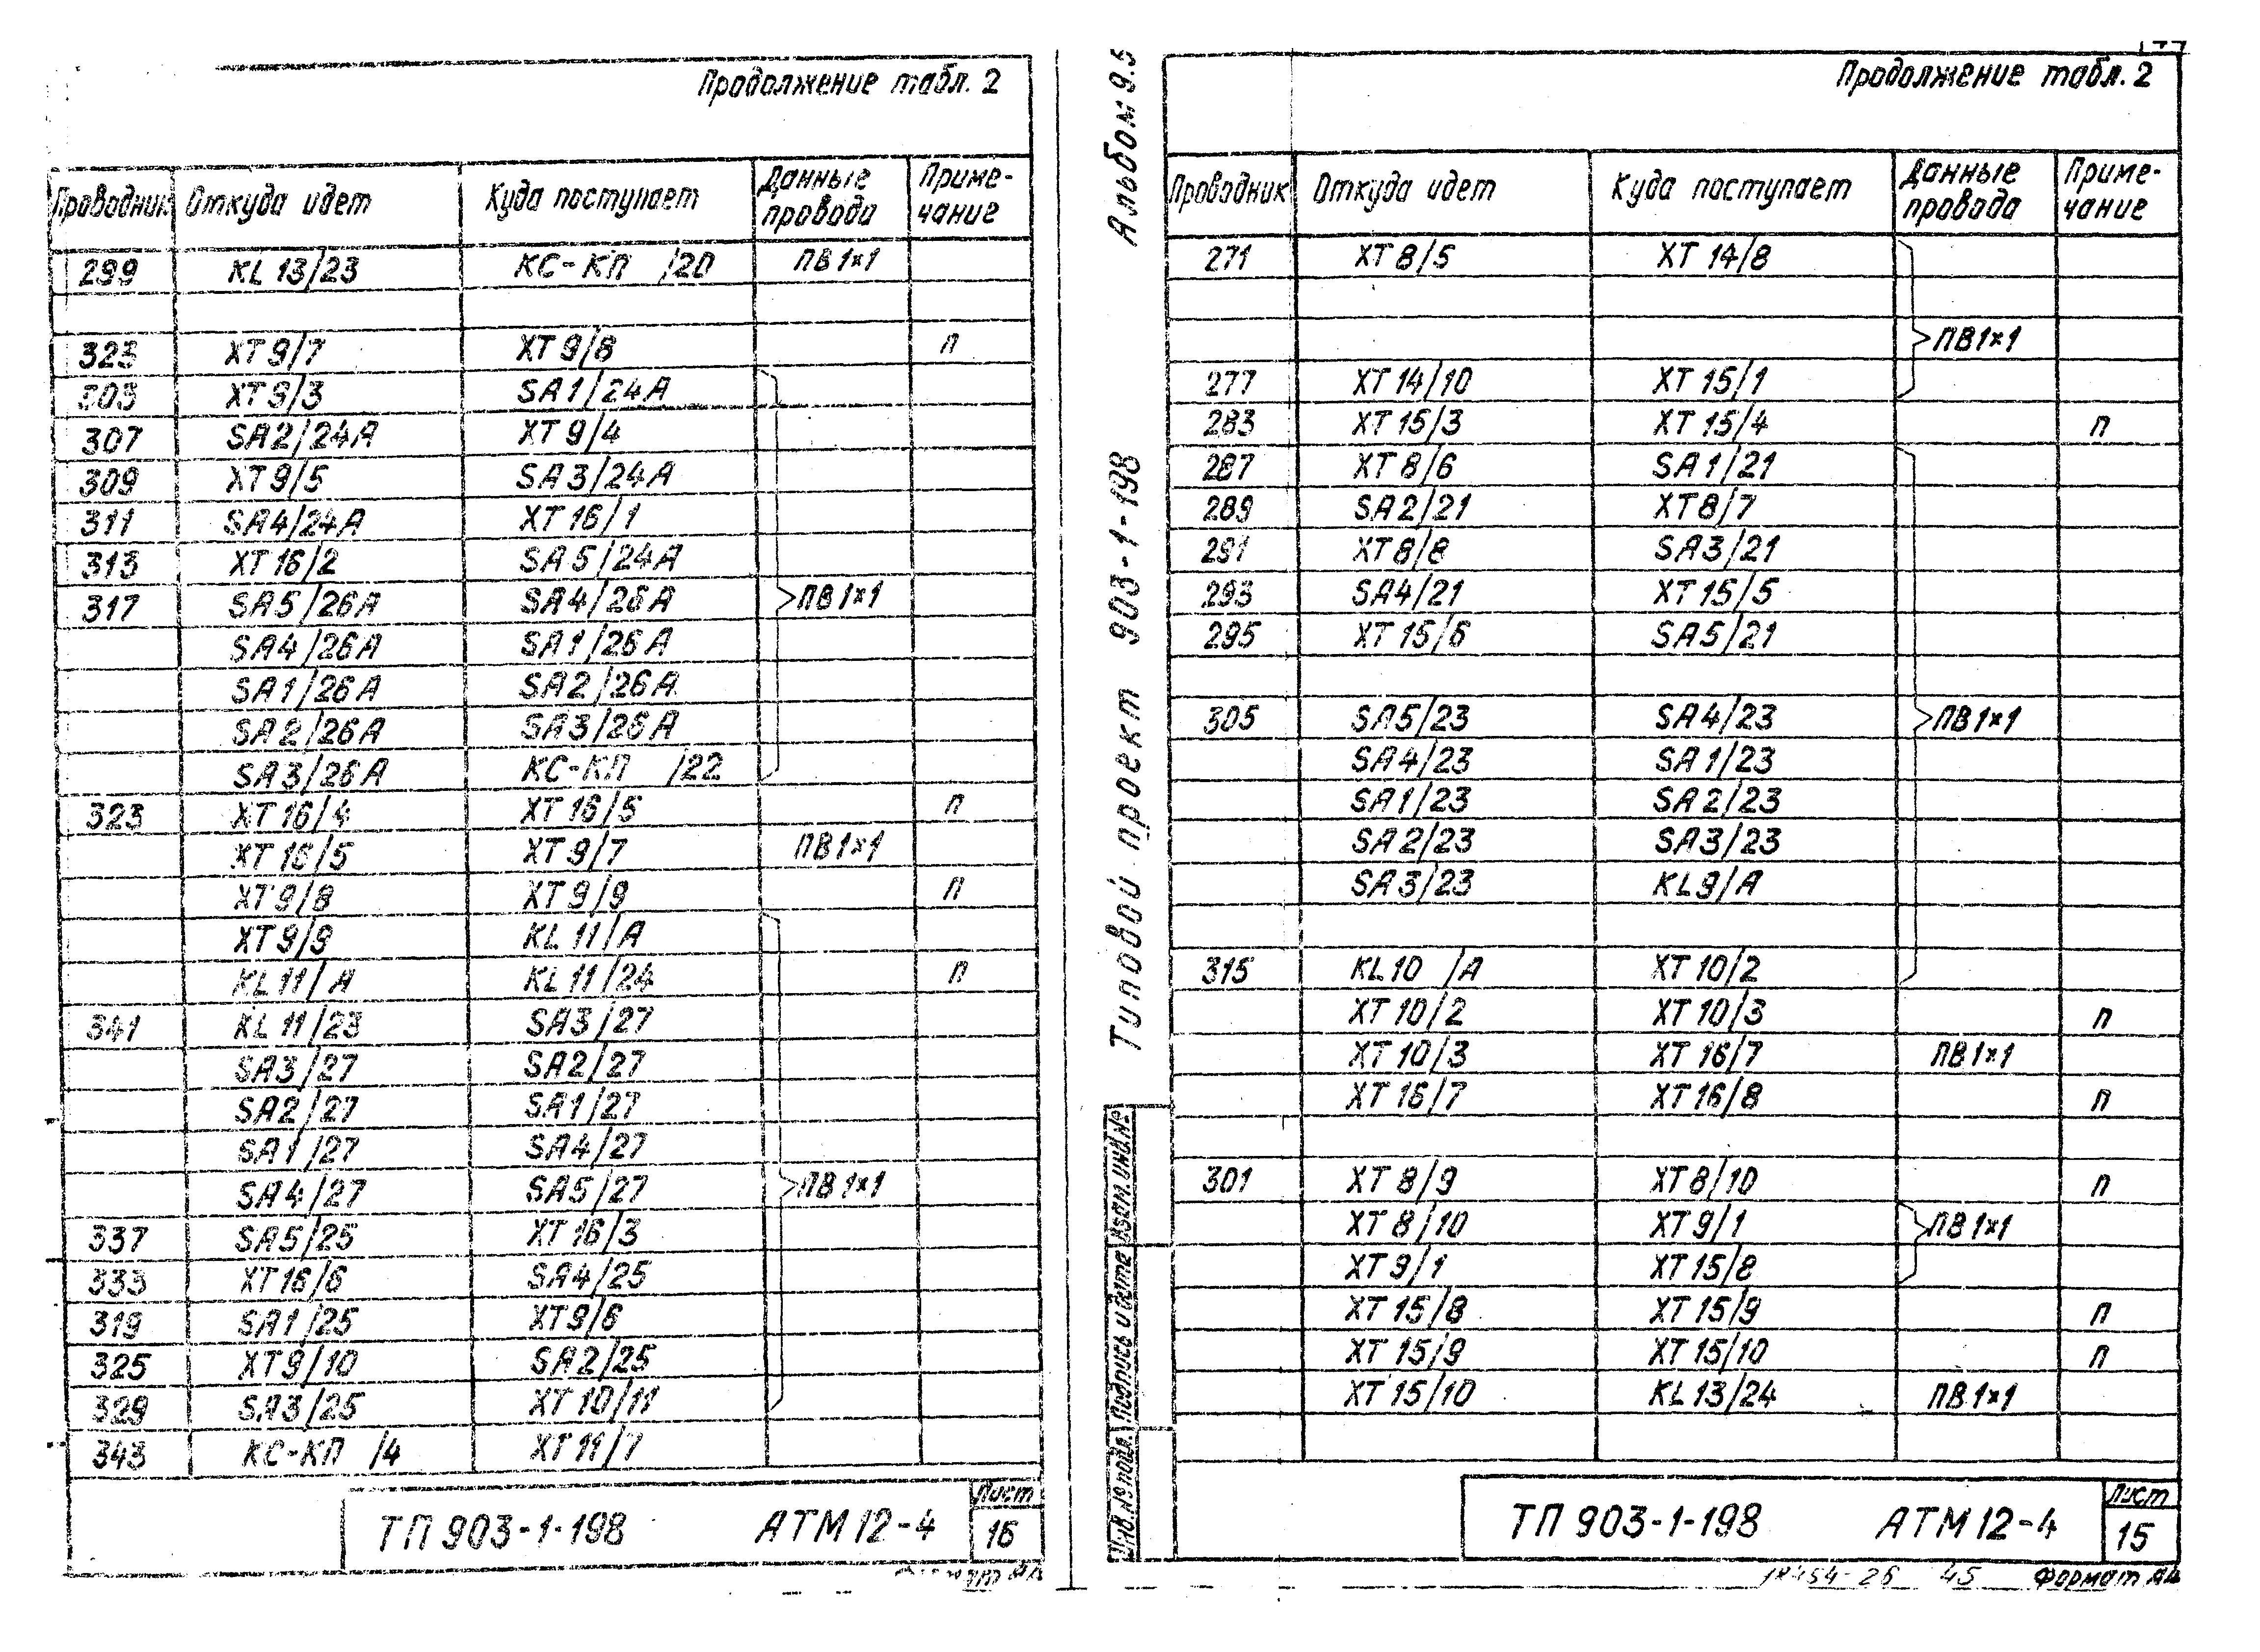 Продолжение табл. 2
Проводник Откуда идет Куда поступает Данные провода Приме-чание
299 KL 13/23 КС-КП /20 ПВ 1×1
323 XT 9/7 XT 9/8 п
303 XT 9/3 SA1/24A
307 SA2/24A XT 9/4
309 XT 9/5 SA3/24A
311 SA4/24A XT 16/1
313 XT 16/2 SA5/24A
317 SA5/26A SA4/26A ПВ 1×1
SA4/26A SA1/26A
SA1/26A SA2/26A
SA2/26A SA3/26A
SA3/26A КС-КП /22
323 XT 16/4 XT 16/5 п
XT 16/5 XT 9/7 ПВ 1×1
XT 9/8 XT 9/9 п
XT 9/9 KL 11/A
KL 11/A KL 11/24 п
341 KL 11/23 SA3/27
SA3/27 SA2/27
SA2/27 SA1/27
SA1/27 SA4/27
SA4/27 SA5/27 ПВ 1×1
337 SA5/25 XT 16/3
333 XT 16/6 SA4/25
319 SA1/25 XT 9/6
325 XT 9/10 SA2/25
329 SA3/25 XT 10/11
343 КС-КП /4 XT 11/7
ТП 903-1-198 АТМ 12-4
Лист
16
Альбом 9.5
Типовой проект 903-1-198
Продолжение табл. 2
Проводник Откуда идет Куда поступает Данные провода Приме-чание
271 XT 8/5 XT 14/8
ПВ 1×1
277 XT 14/10 XT 15/1
283 XT 15/3 XT 15/4 п
287 XT 8/6 SA1/21
289 SA2/21 XT 8/7
291 XT 8/8 SA3/21
293 SA4/21 XT 15/5
295 XT 15/6 SA5/21
305 SA5/23 SA4/23 ПВ 1×1
SA4/23 SA1/23
SA1/23 SA2/23
SA2/23 SA3/23
SA3/23 KL9/A
315 KL10 /A XT 10/2
XT 10/2 XT 10/3 п
XT 10/3 XT 16/7 ПВ 1×1
XT 16/7 XT 16/8 п
301 XT 8/9 XT 8/10 п
XT 8/10 XT 9/1 ПВ 1×1
XT 9/1 XT 15/8
XT 15/8 XT 15/9 п
XT 15/9 XT 15/10 п
XT 15/10 KL 13/24 ПВ 1×1
Взам. инв. №
Подпись и дата
Инв. № подл.
ТП 903-1-198 АТМ 12-4
Лист
15
18454-26 45 Формат А4